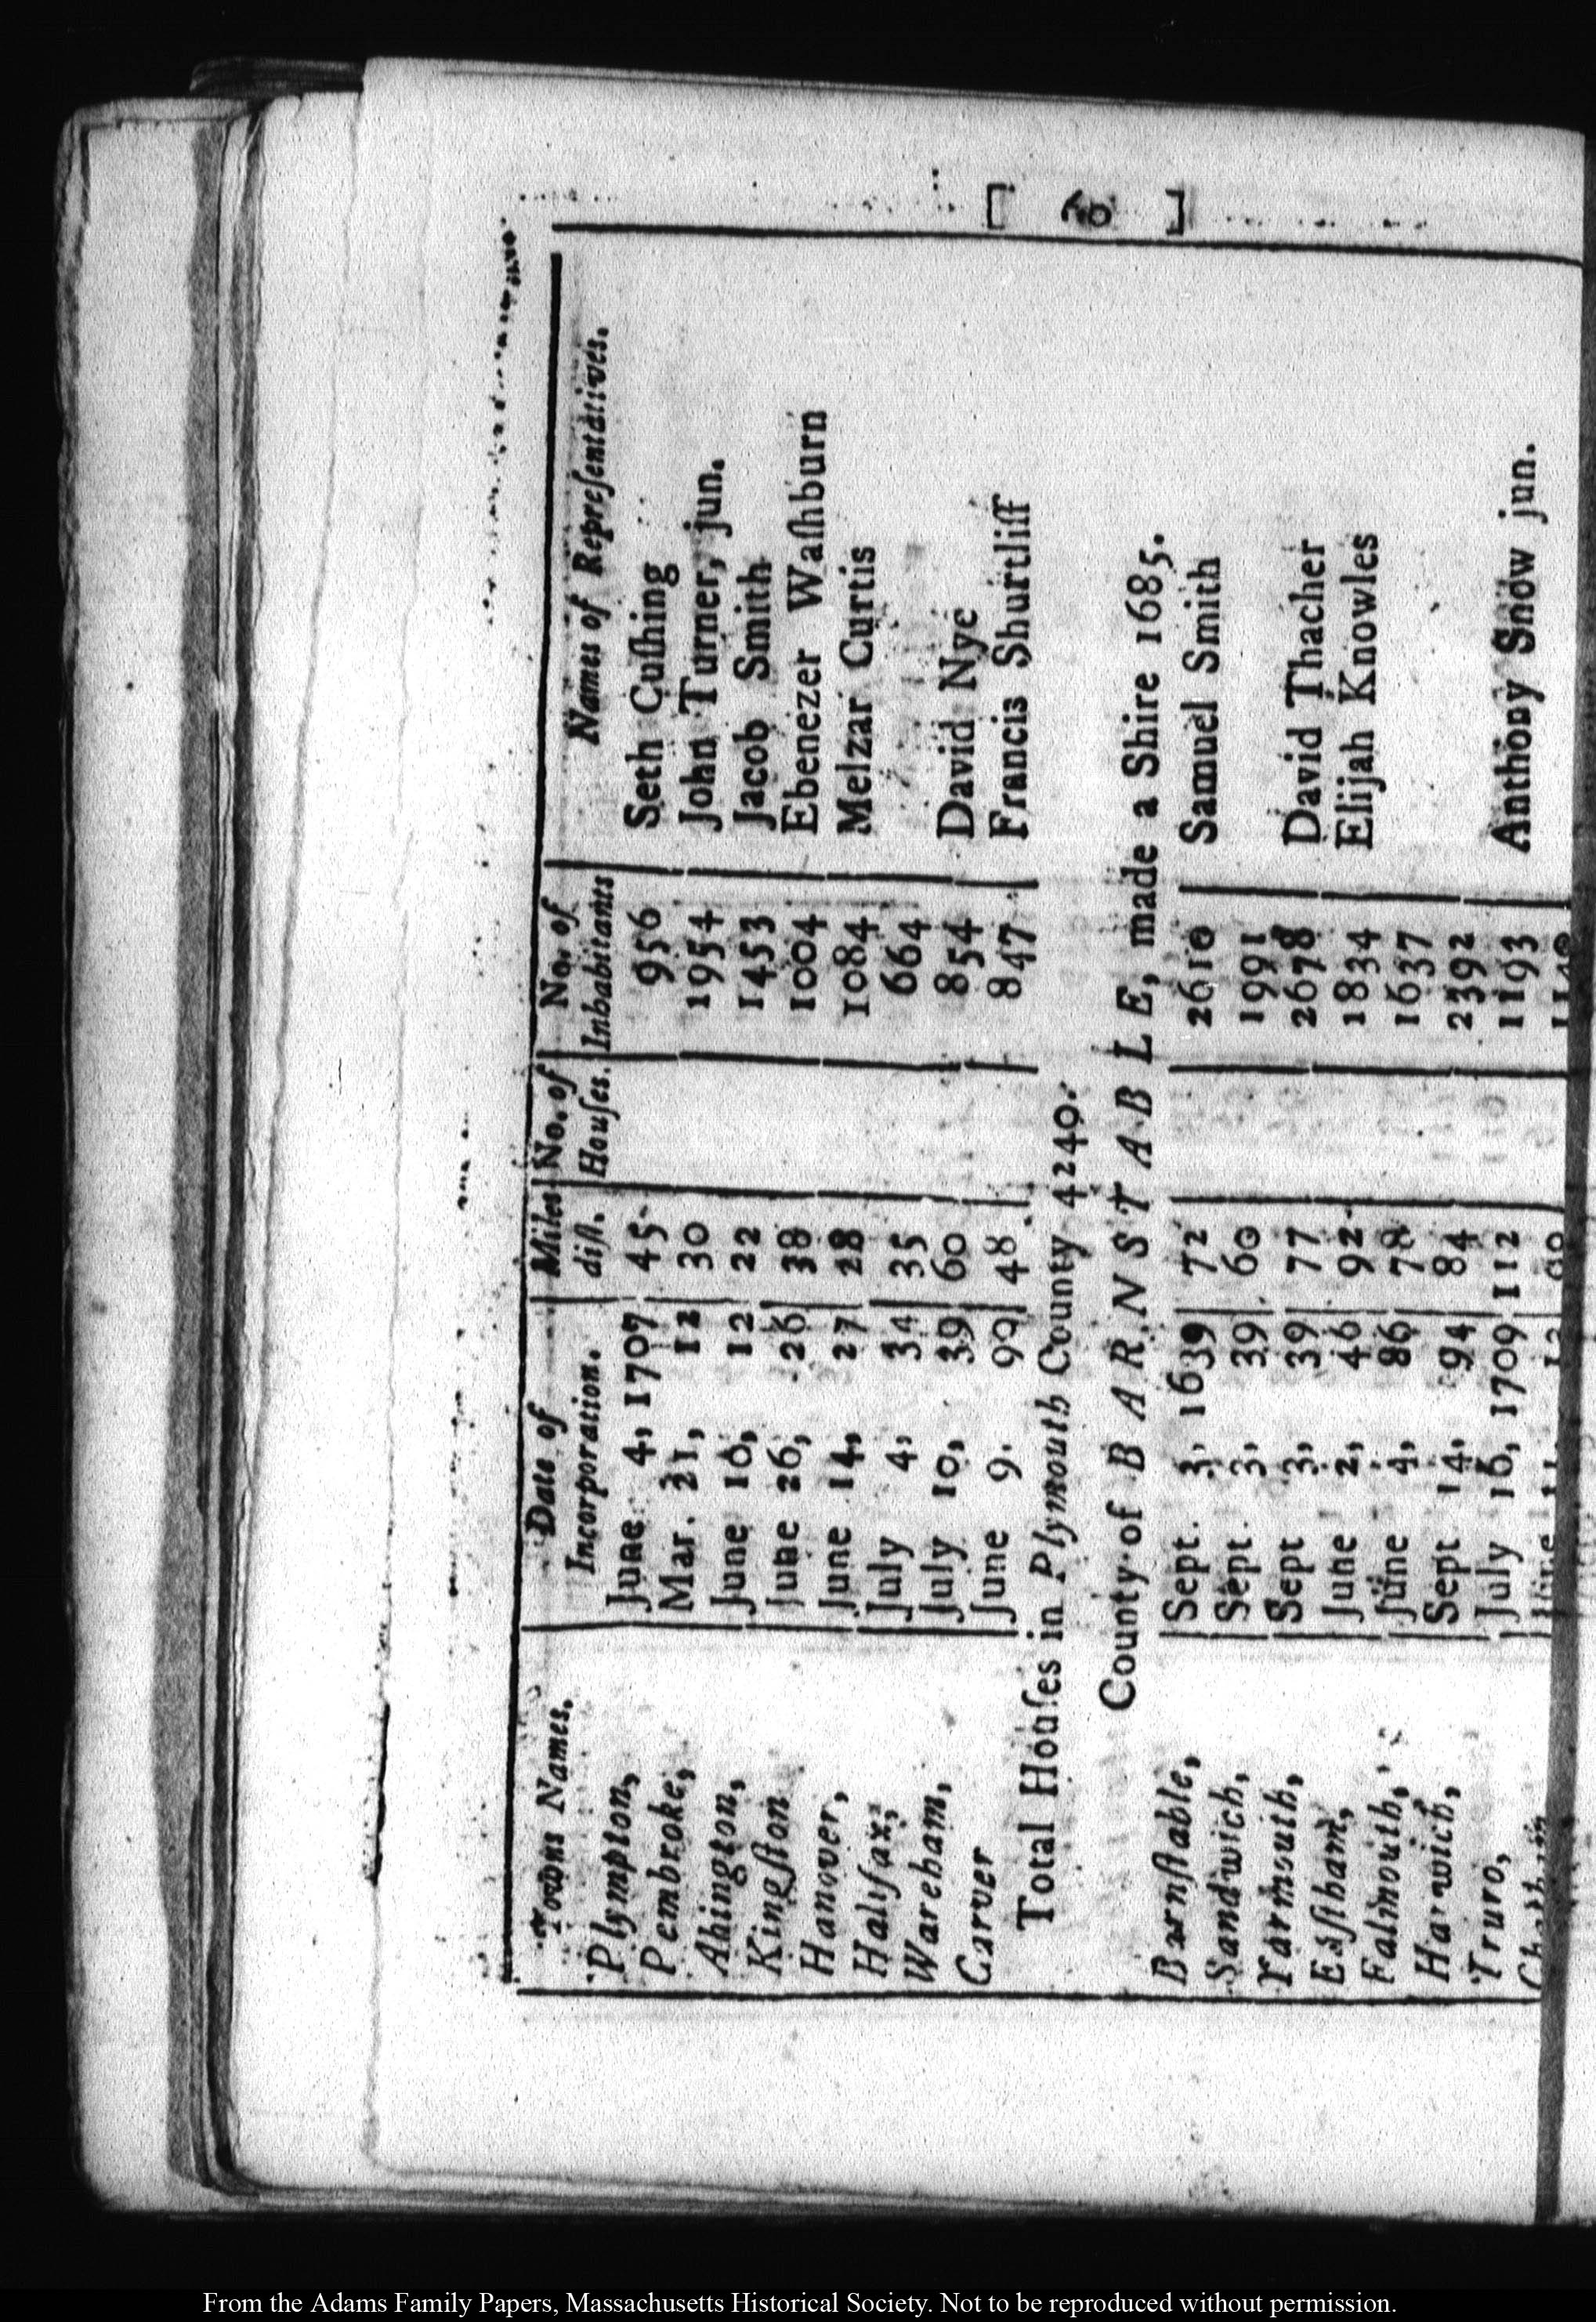 Towns Names. Date of Incorporation. Miles diſt. No. of Houſes. No. of Inhabitants Names of Repreſentatives.
Plympton, June 4, 1707 45 956 Seth Cuſhing
Pembroke, Mar. 21, 12 30 1954 John Turner, jun.
Abington, June 10, 12 22 1453 Jacob Smith
Kingſton June 26, 26 38 1004 Ebenezer Waſhburn
Hanover, June 14, 27 28 1084 Melzar Curtis
Halifax, July 4, 34 35 664
Wareham, July 10, 39 60 854 David Nye
Carver June 9. 90 48 847 Francis Shurtliff
Total Houſes in Plymouth County 4240.
County of BARNSTABLE, made a Shire 1685.
Barnſtable, Sept. 3, 1639 72 2610 Samuel Smith
Sandwich, Sept. 3, 39 60 1991
Yarmouth, Sept 3, 39 77 2678 David Thacher
Eaſtham, June 2, 46 92 1834 Elijah Knowles
Falmouth, June 4, 86 78 1637
Harwich, Sept 14, 94 84 2392
Truro, July 16, 1709 112 1193 Anthony Snow jun.
From the Adams Family Papers, Massachusetts Historical Society. Not to be reproduced without permission.